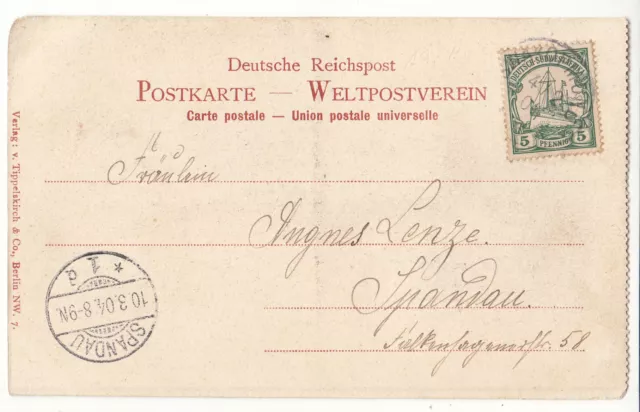 Deutsche Reichspost
POSTKARTE — WELTPOSTVEREIN
Carte postale — Union postale universelle
DEUTSCH-SÜDWESTAFRIKA
5 PFENNIG 5
Fräulein
Angnes Lenze.
Spandau.
Falkenhagenerstr. 58
SPANDAU
10.3.04.8-9N.
* 1 d
Verlag: v. Tippelskirch & Co., Berlin NW. 7.